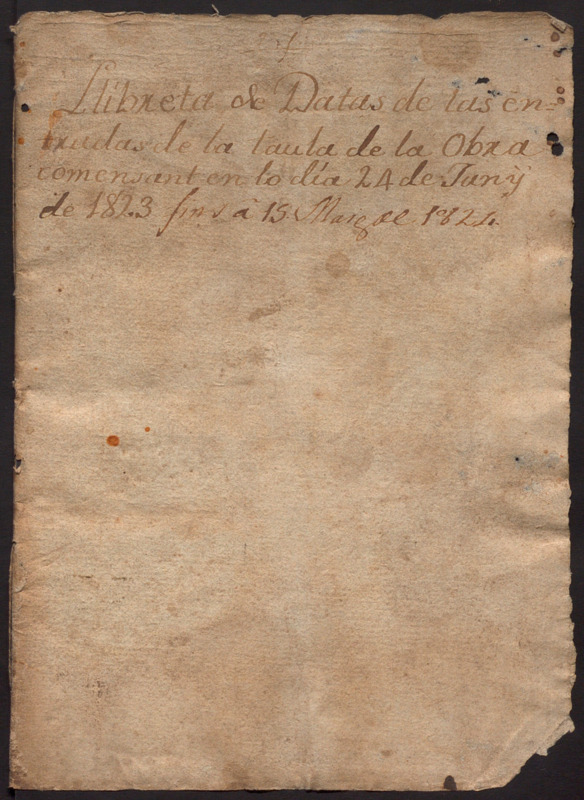 Llibreta de Datas de las en=
tradas de la taula de la Obra
comensant en lo dia 24 de Juny
de 1823 fins á 15 Maig de 1824.